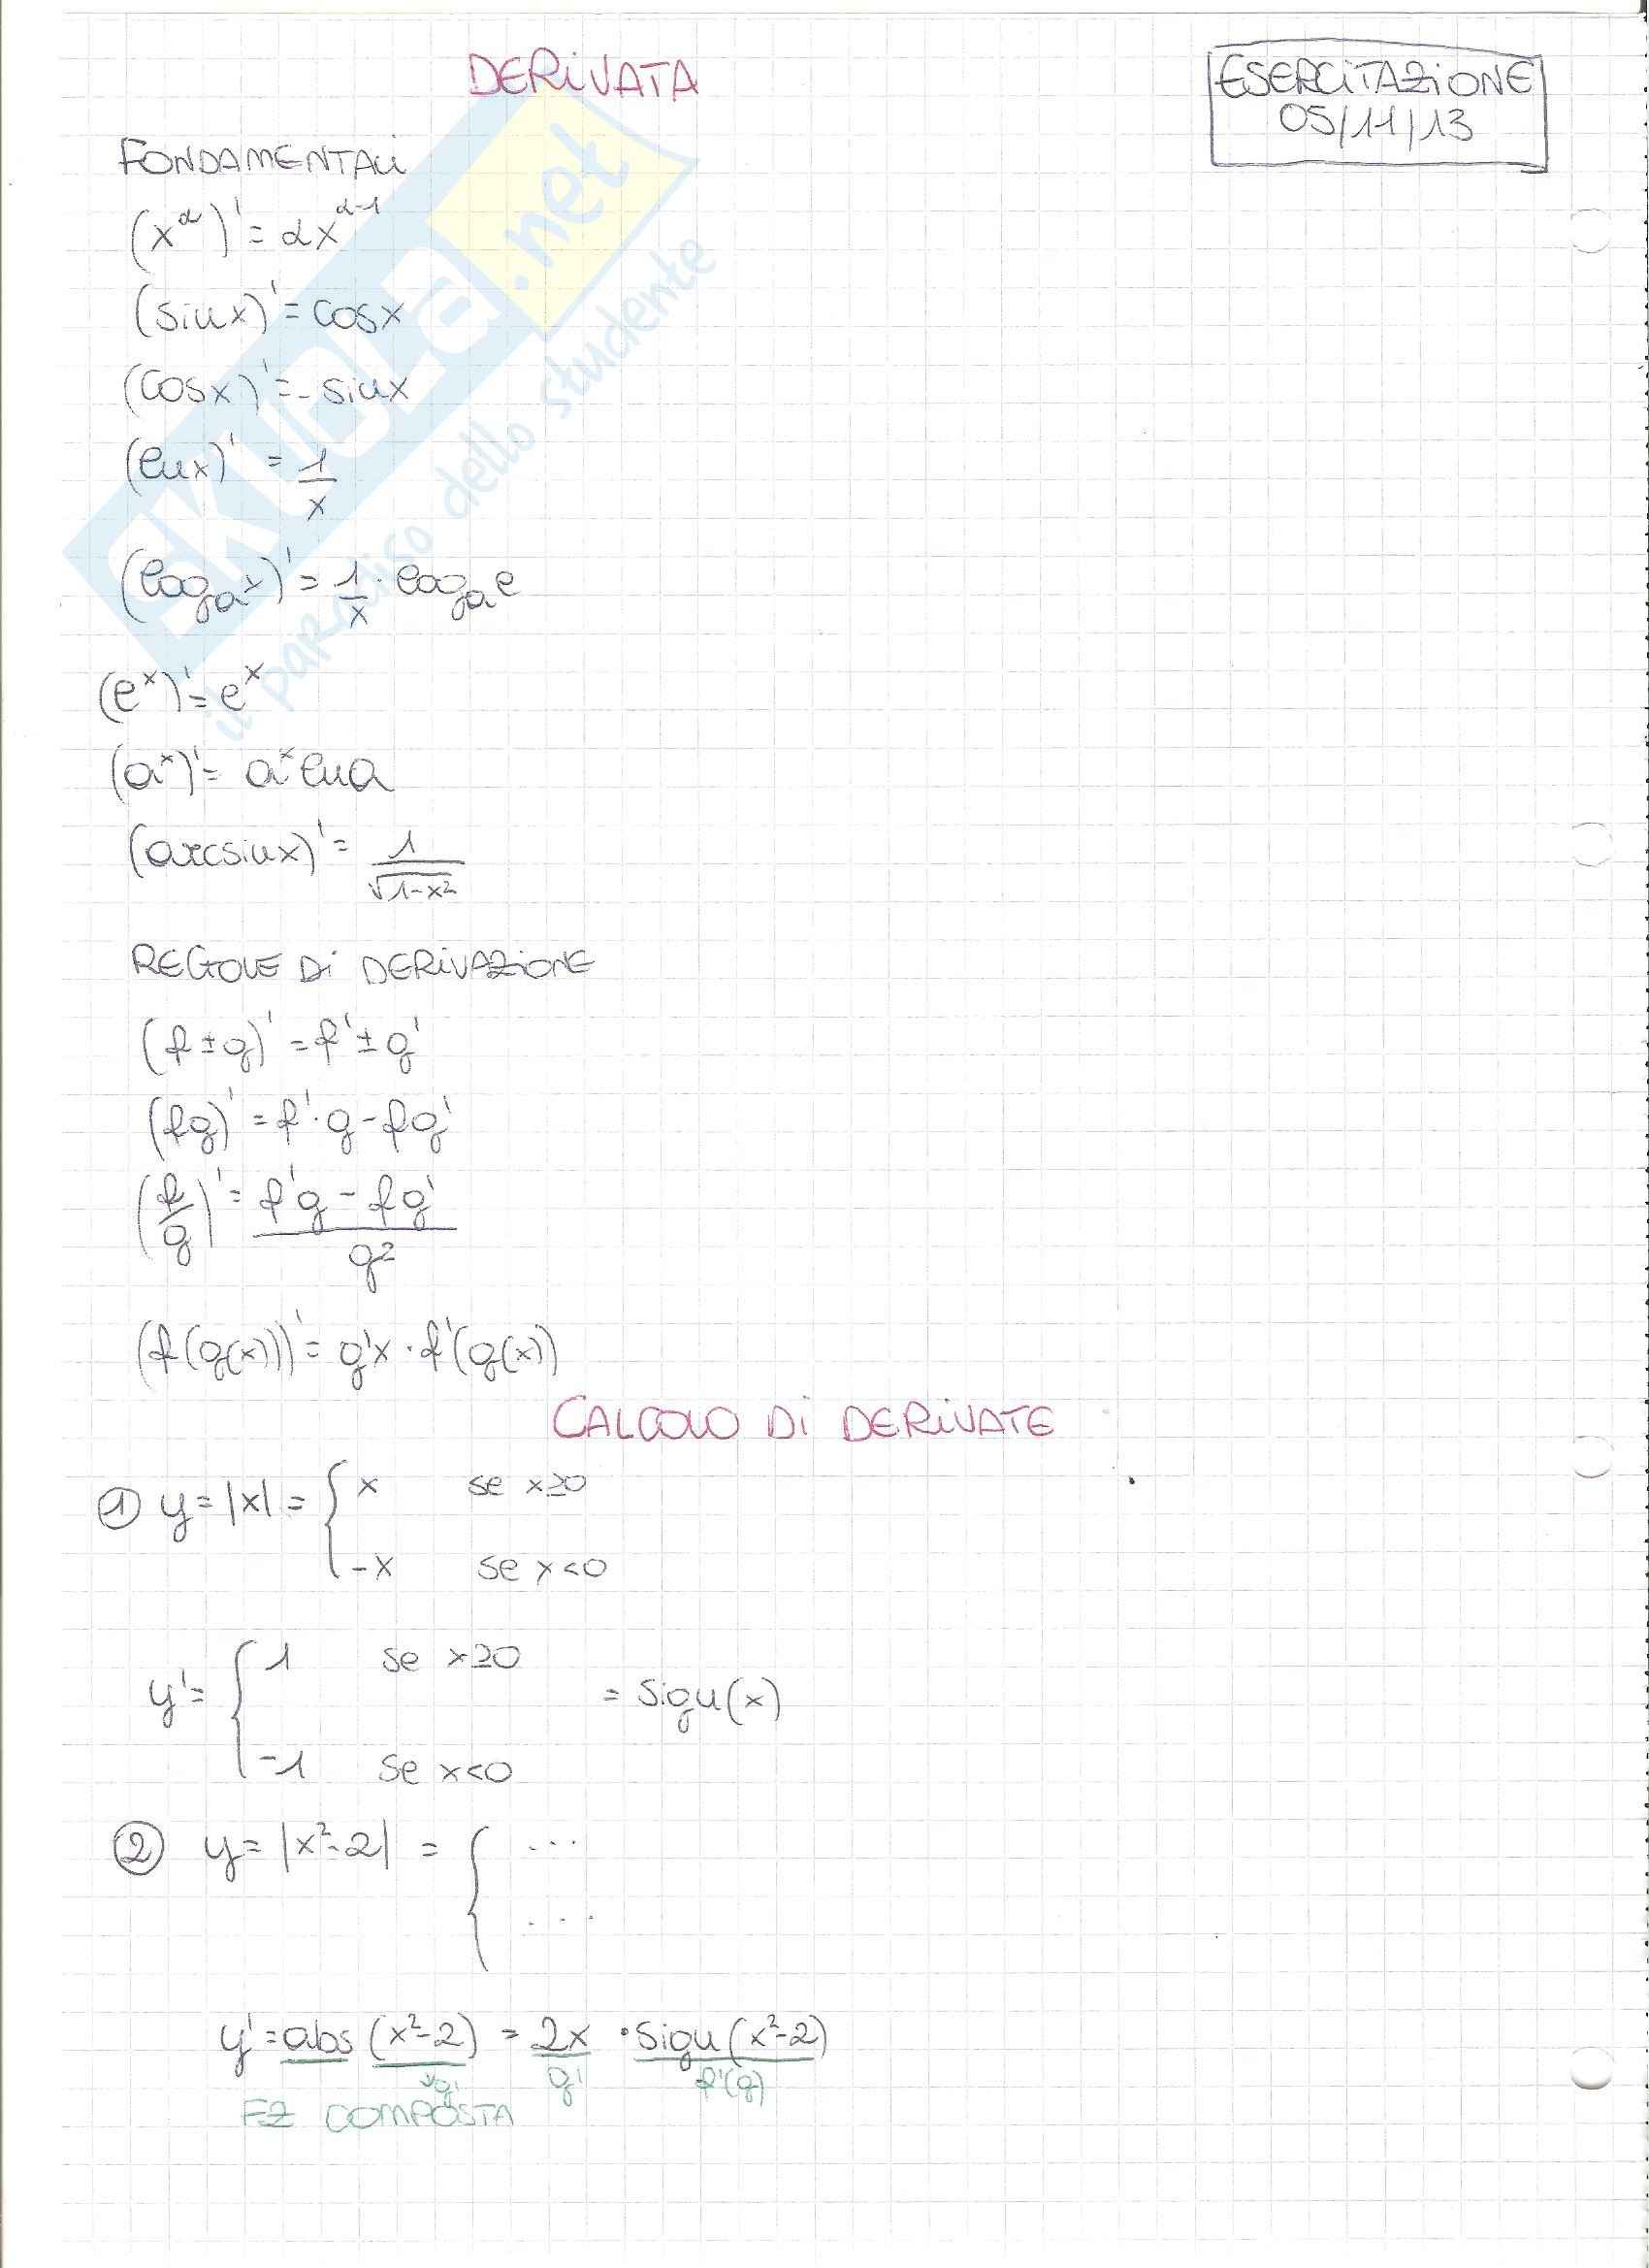 DERIVATA
ESERCITAZIONE
05/11/13
FONDAMENTALI
(x^α)' = αx^(α-1)
(sinx)' = cosx
(cosx)' = -sinx
(lnx)' = 1/x
(log_a x)' = 1/x · log_a e
(e^x)' = e^x
(a^x)' = a^x lna
(arcsinx)' = 1/√(1-x²)
REGOLE DI DERIVAZIONE
(f±g)' = f'±g'
(fg)' = f'·g-fg'
(f/g)' = (f'g - fg')/g²
(f(g(x)))' = g'x · f'(g(x))
CALCOLO DI DERIVATE
① y = |x| = { x se x≥0
-x se x<0
y' = { 1 se x≥0
-1 se x<0
= sign(x)
② y = |x²-2| = { ...
...
y' = abs (x²-2) = 2x · sign(x²-2)
g' g' f'(g)
FZ COMPOSTA
SKUOLA.net
il paradiso dello studente